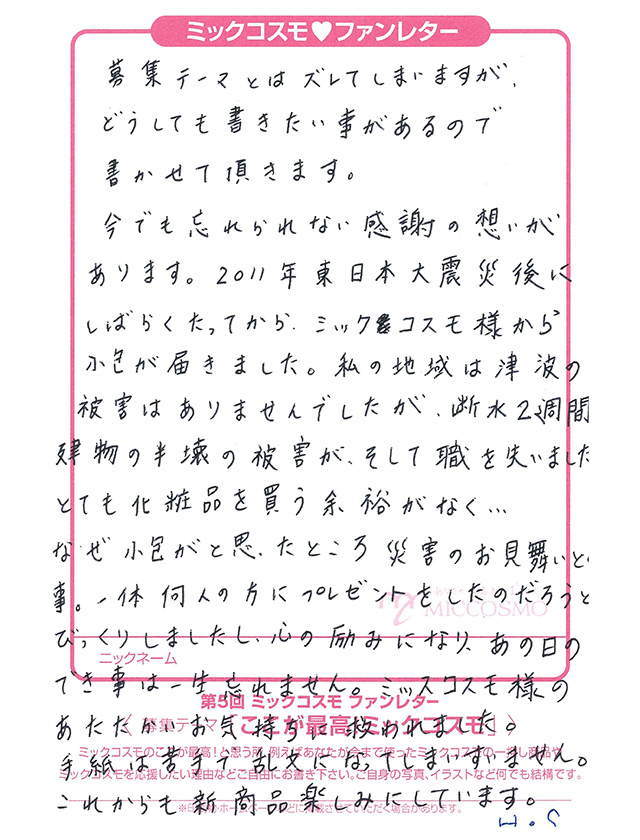 ミックコスモ♥ファンレター
募集テーマとはズレてしまいますが、
どうしても書きたい事があるので
書かせて頂きます。
今でも忘れられない感謝の想いが
あります。2011年東日本大震災後に
しばらくたってから、ミックコスモ様から
小包が届きました。私の地域は津波の
被害はありませんでしたが、断水2週間
建物の半壊の被害が、そして職を失いました
とても化粧品を買う余裕がなく…
なぜ小包がと思ったところ災害のお見舞いとの
事。一体何人の方にプレゼントをしたのだろうと
MICCOSMO
びっくりしましたし、心の励みになり、あの日の
ニックネーム
でき事は一生忘れません。ミックスコスモ様の
第5回 ミックコスモ ファンレター
あたたかいお気持ちに救われました。
〈募集テーマ「ここが最高!ミックコスモ」〉
手紙は苦手で乱文になってしまいすいません。
ミックコスモのここが最高!と思う所、例えばあなたが今まで使ったミックコスモの一推し商品や
ミックコスモを応援したい理由などご自由にお書き下さい。ご自身の写真、イラストなど何でも結構です。
これからも新商品楽しみにしています。
H.S